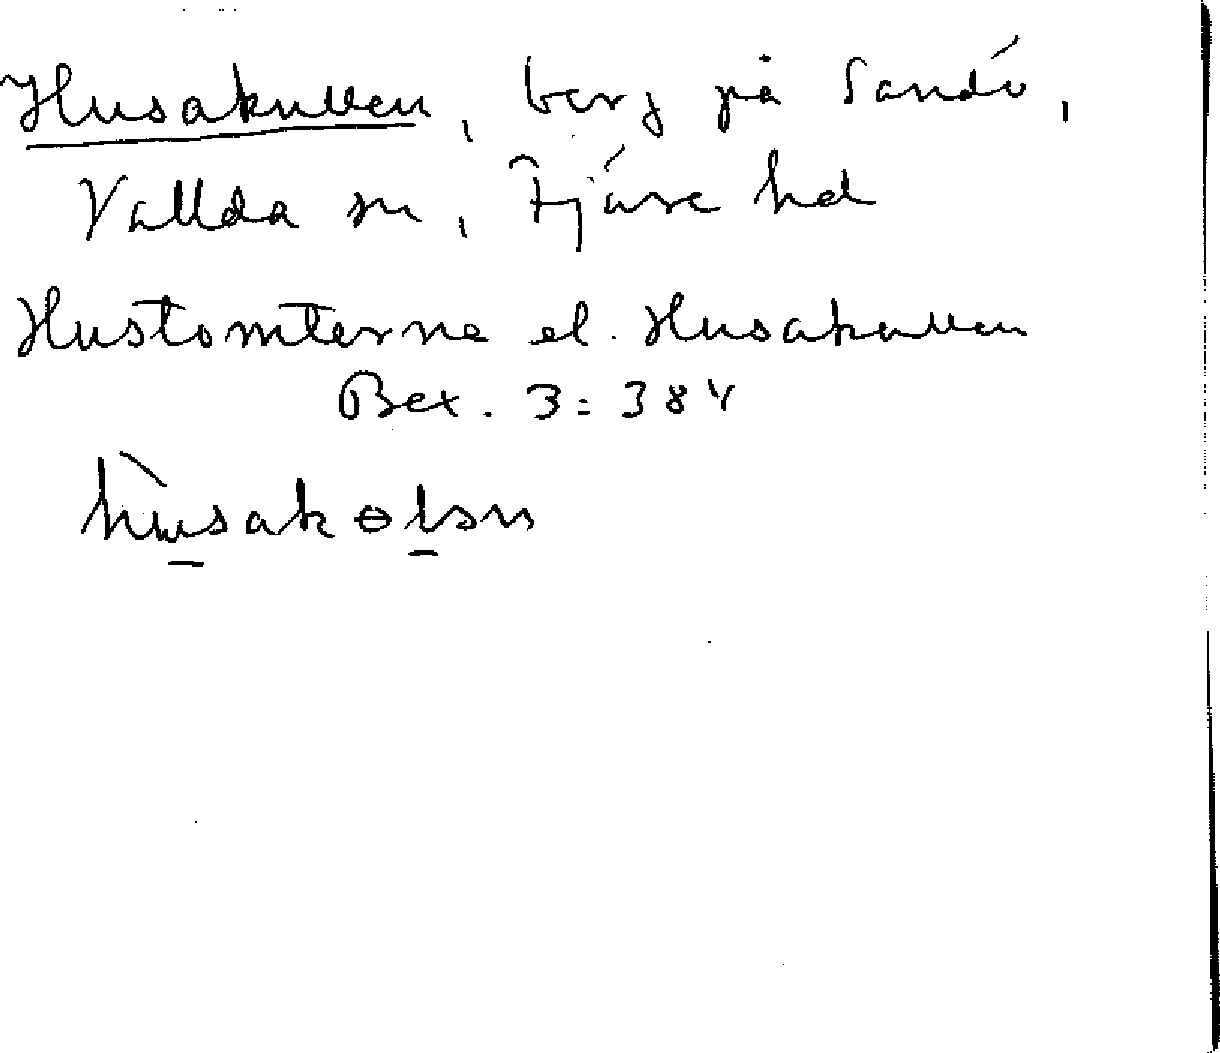 Husakullen, berg på Sandö,
Vallda sn, Fjäre hd
Hustomterne el. Husakullen
Bex. 3:384